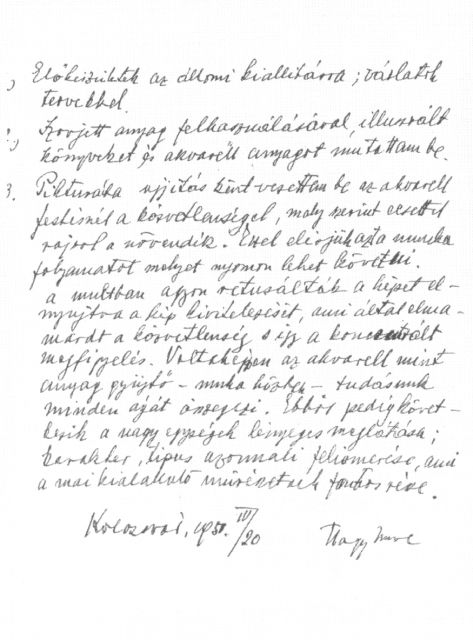 1) Előkészületek az állami kiállításra; vázlatok
tervekkel.
2.) Szovjett anyag felhasználásával, illusztrált
könyveket és akvarell anyagot mutattam be.
3. Pikturába ujjitás ként vezettem be az akvarell
festésnél a közvetlenséget, mely szerint ecsettel
rajzol a növendék. Ezzel elérjük azt a munka
folyamatot melyet nyomon lehet követni.
a multban agyon retusálták a képet el-
nyujtva a kép kivitelezését, ami által elma-
radt a közvetlenség s igy a koncentrált
megfigyelés. Voltaképpen az akvarell mint
anyag gyüjtő - munka közben - tudásunk
minden ágát összegezi. Ebből pedig követ-
kezik a nagy egységek lényeges meglátása;
karakter, tipus azonnali felismerése, ami
a mai kialakuló művészetnek fontos része.
Kolozsvár, 1951. IV/20
Nagy Imre